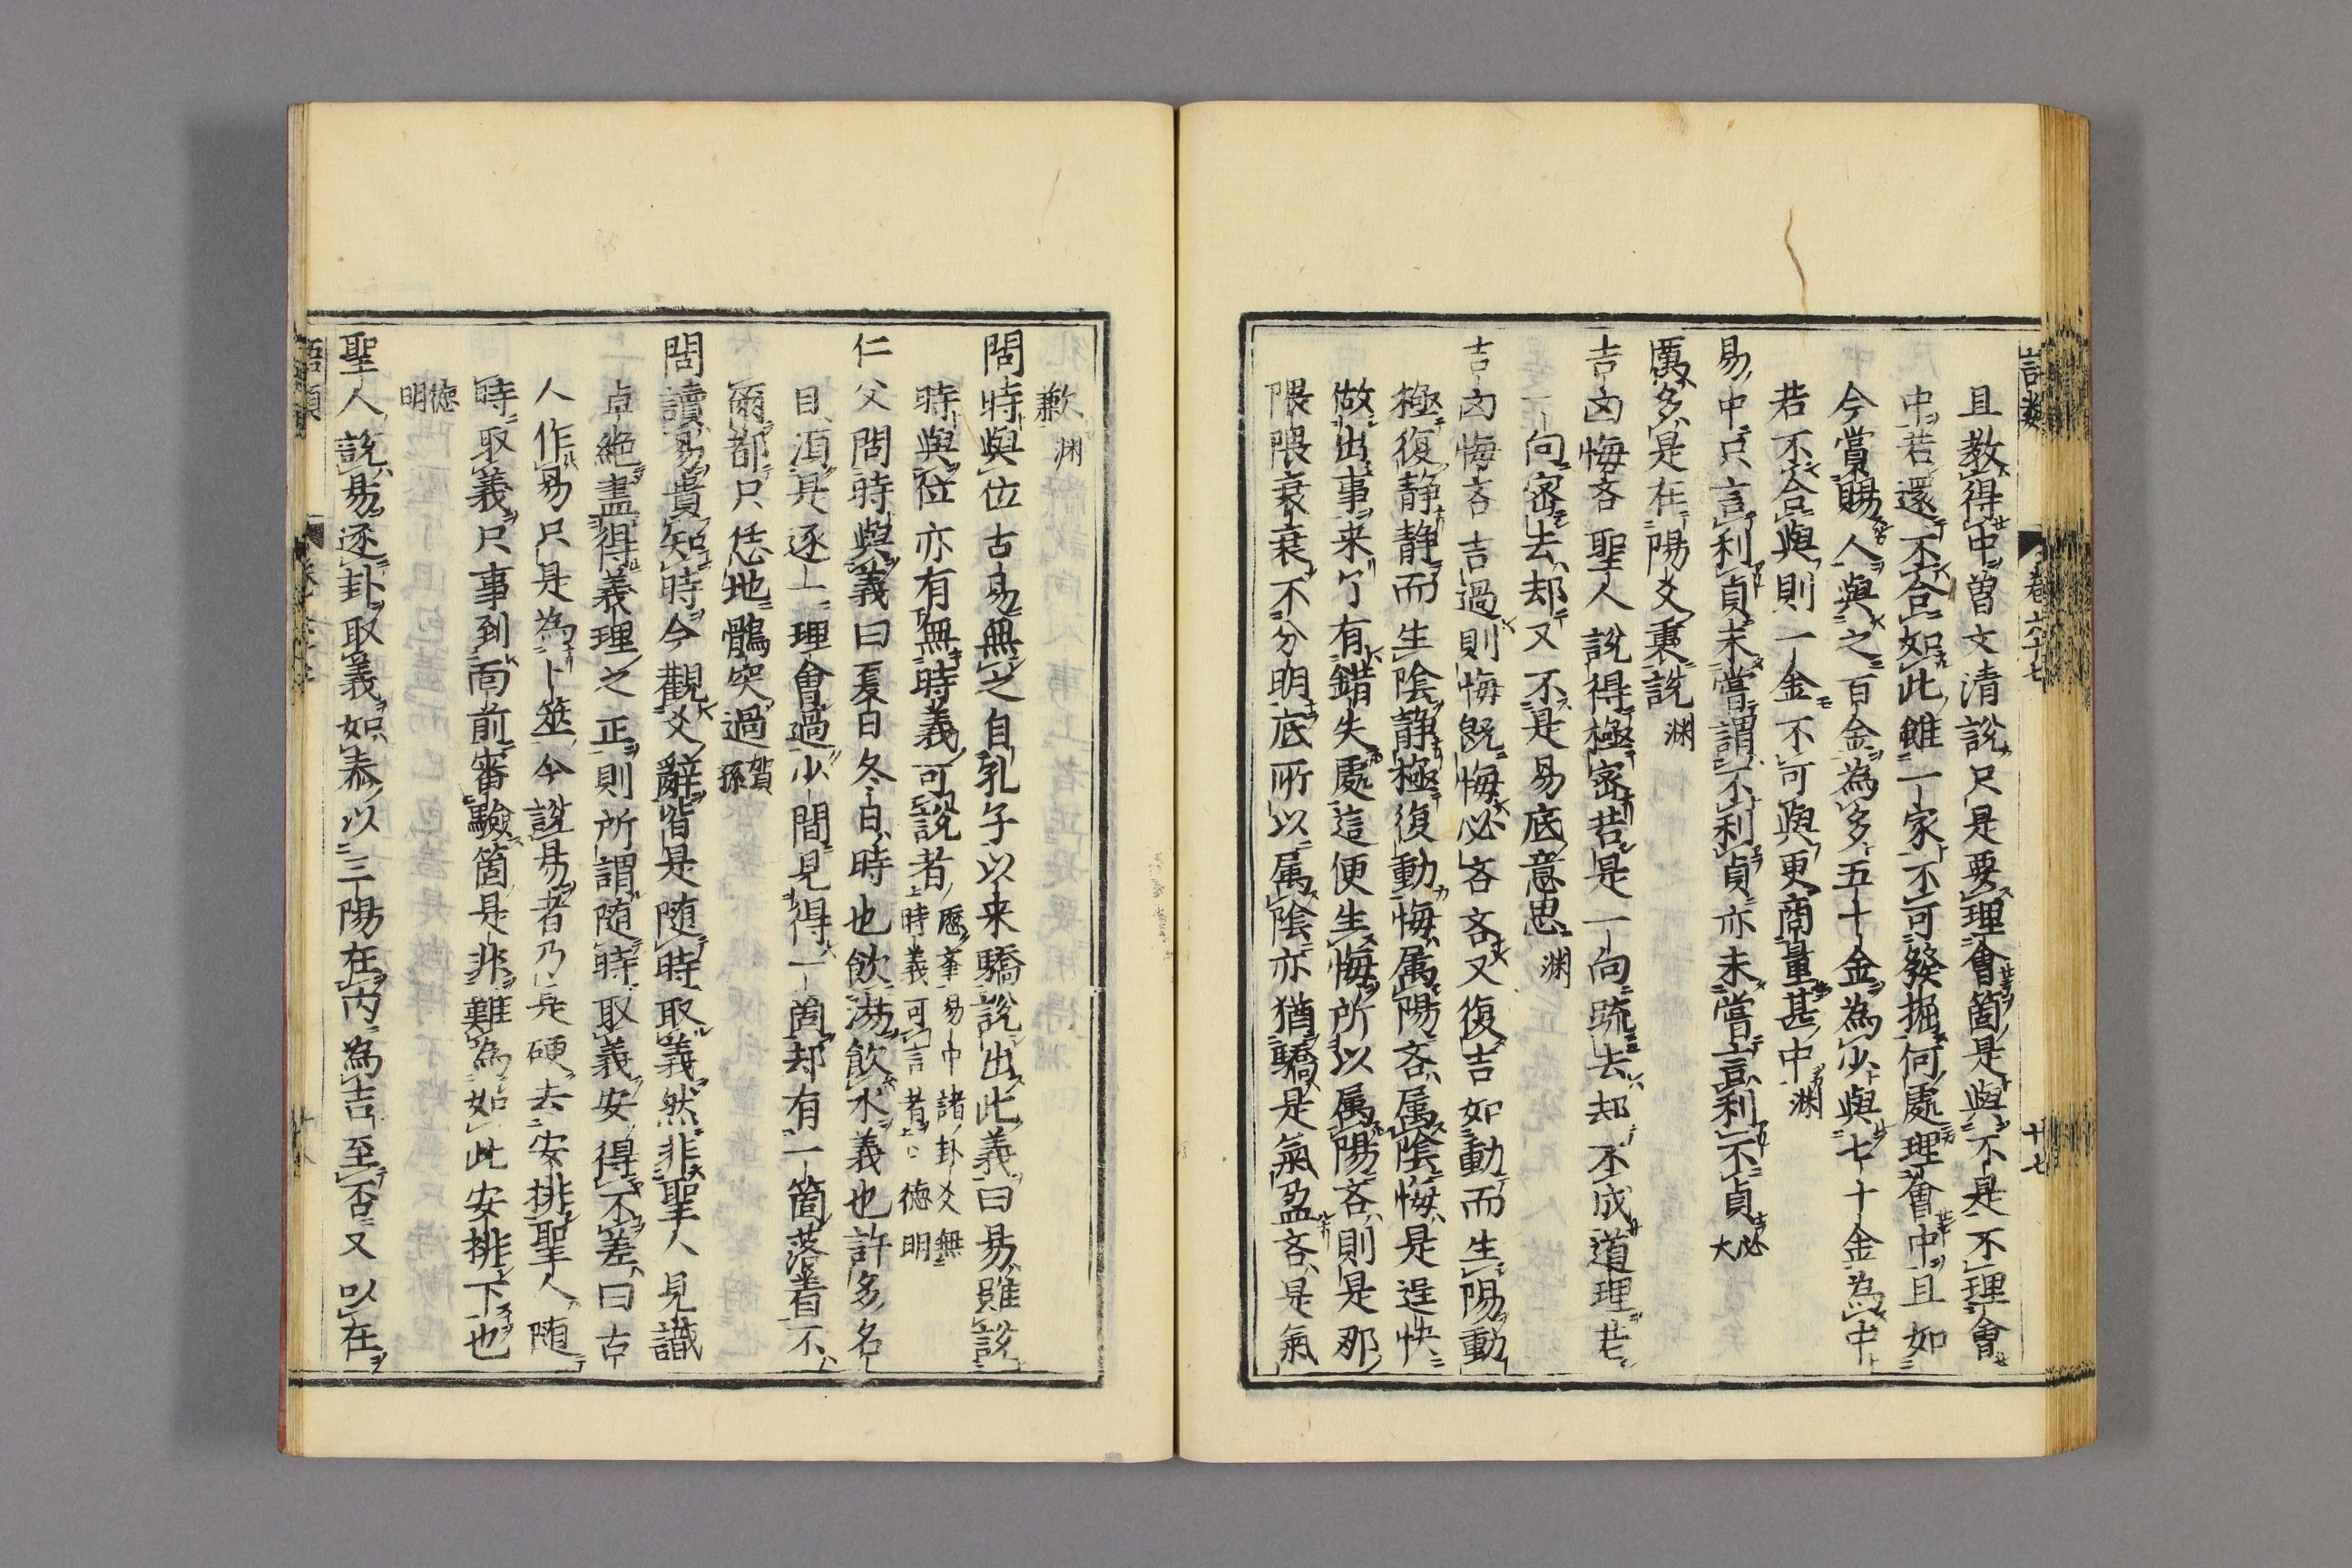 且教得中曾文清說只是要理會箇是與不是不理會
中若還不合如此雖一家不可發掘何處理會中且如
今嘗賜人與之百金為多五十金為少與七十金為中
若不合與則一金不可與更商量甚中淵
易中只言利貞未嘗謂不利貞亦未嘗言利不貞必大
厲多是在陽爻裏說淵
吉凶悔吝聖人說得極密若是一向疏去却不成道理若
一向密去却又不是易底意思淵
吉凶悔吝吉過則悔既悔必吝吝又復吉如動而生陽動
極復静静而生陰静極復動悔属陽吝属陰悔是逞快
做出事来了有錯失處這便生悔所以属陽吝則是那
隈隈衰衰不分明底所以属陰亦猶驕是氣盈吝是氣
歉淵
問時與位古易無之自孔子以来驕說出此義曰易雖說
時與位亦有無時義可說者歷舉易中諸卦爻無時義可言者云云德明
仁父問時與義曰夏日冬日時也飲湯飲水義也許多名
目須是逐一理會過少間見得一箇却有一箇落着不
爾都只恁地鶻突過賀孫
問讀易貴知時今觀爻辭皆是随時取義然非聖人見識
卓絶盡得義理之正則所謂随時取義安得不差曰古
人作易只是為卜筮今說易者乃是硬去安排聖人随
時取義只事到面前審驗箇是非難為如此安排下也
德明
聖人說易逐卦取義如泰以三陽在内為吉至否又以在
語類
卷六十七
十七